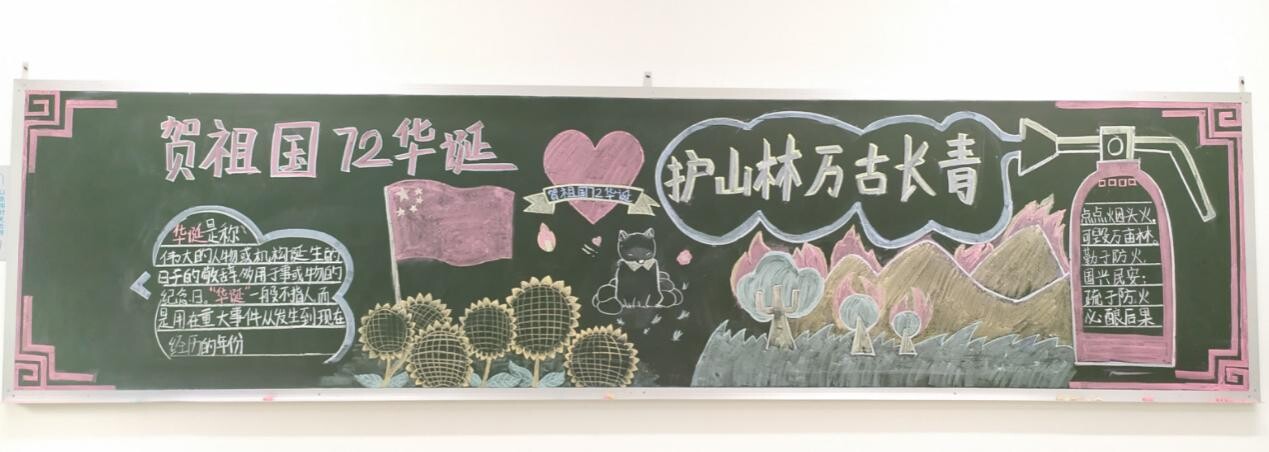 贺祖国72华诞
华诞是称
伟大的人物或机构诞生的
日子的敬辞多用于事或物的
纪念日。"华诞"一般不指人而
是用在重大事件从发生到现在
经历的年份
贺祖国72华诞
护山林万古长青
点点烟头火,
可毁万亩林。
勤于防火
国兴民安;
疏于防火
必酿后果